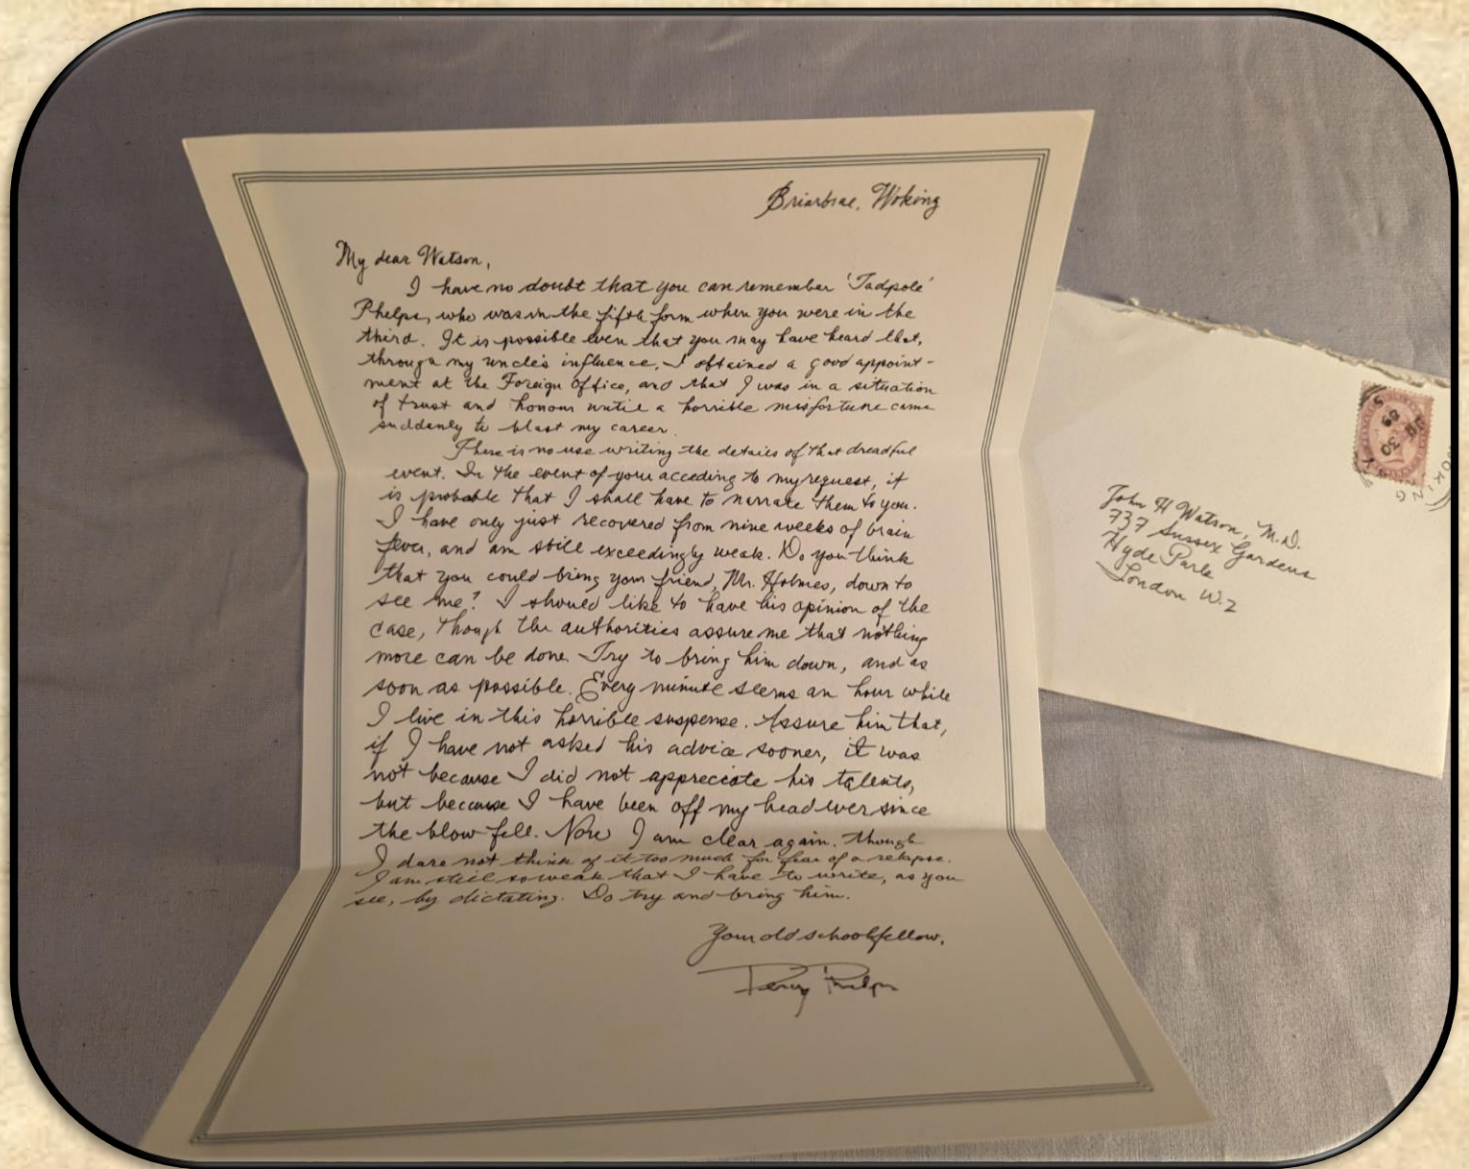 Briarbrae, Woking
My dear Watson,
I have no doubt that you can remember 'Tadpole'
Phelps, who was in the fifth form when you were in the
third. It is possible even that you may have heard that,
through my uncle's influence, I obtained a good appoint-
ment at the Foreign Office, and that I was in a situation
of trust and honour until a horrible misfortune came
suddenly to blast my career.
There is no use writing the details of that dreadful
event. In the event of your acceding to my request, it
is probable that I shall have to narrate them to you.
I have only just recovered from nine weeks of brain
fever, and am still exceedingly weak. Do you think
that you could bring your friend, Mr. Holmes, down to
see me? I should like to have his opinion of the
case, though the authorities assure me that nothing
more can be done. Try to bring him down, and as
soon as possible. Every minute seems an hour while
I live in this horrible suspense. Assure him that,
if I have not asked his advice sooner, it was
not because I did not appreciate his talents,
but because I have been off my head ever since
the blow fell. Now I am clear again, though
I dare not think of it too much for fear of a relapse.
I am still so weak that I have to write, as you
see, by dictating. Do try and bring him.
Your old schoolfellow,
Percy Phelps
John H Watson, M.D.
737 Sussex Gardens
Hyde Park
London W.2